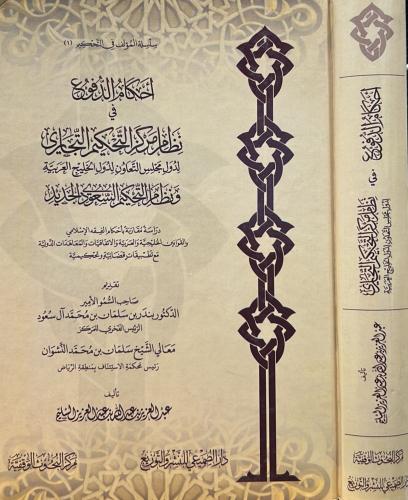 سلسلة المؤلف في التحكيم (١)
أحكام الدفوع
في
نظام مركز التحكيم التجاري
لدول مجلس التعاون لدول الخليج العربية
ونظام التحكيم السعودي الجديد
دراسة مقارنة بأحكام الفقه الإسلامي
والقوانين الخليجية والعربية والاتفاقيات والمعاهدات الدولية
مع تطبيقات قضائية وتحكيمية
تقديم
صاحب السمو الأمير
الدكتور بندر بن سلمان بن محمد آل سعود
الرئيس الفخري للمركز
معالي الشيخ سلمان بن محمد النشوان
رئيس محكمة الاستئناف بمنطقة الرياض
تأليف
عبد العزيز بن عبد الله بن عبد العزيز السليم
دار الصميعي للنشر والتوزيع
مركز البحوث الوقفية
أحكام الدفوع
في
نظام مركز التحكيم التجاري
لدول مجلس التعاون لدول الخليج العربية
تأليف
عبد العزيز بن عبد الله بن عبد العزيز السليم
مركز البحوث الوقفية
دار الصميعي للنشر والتوزيع